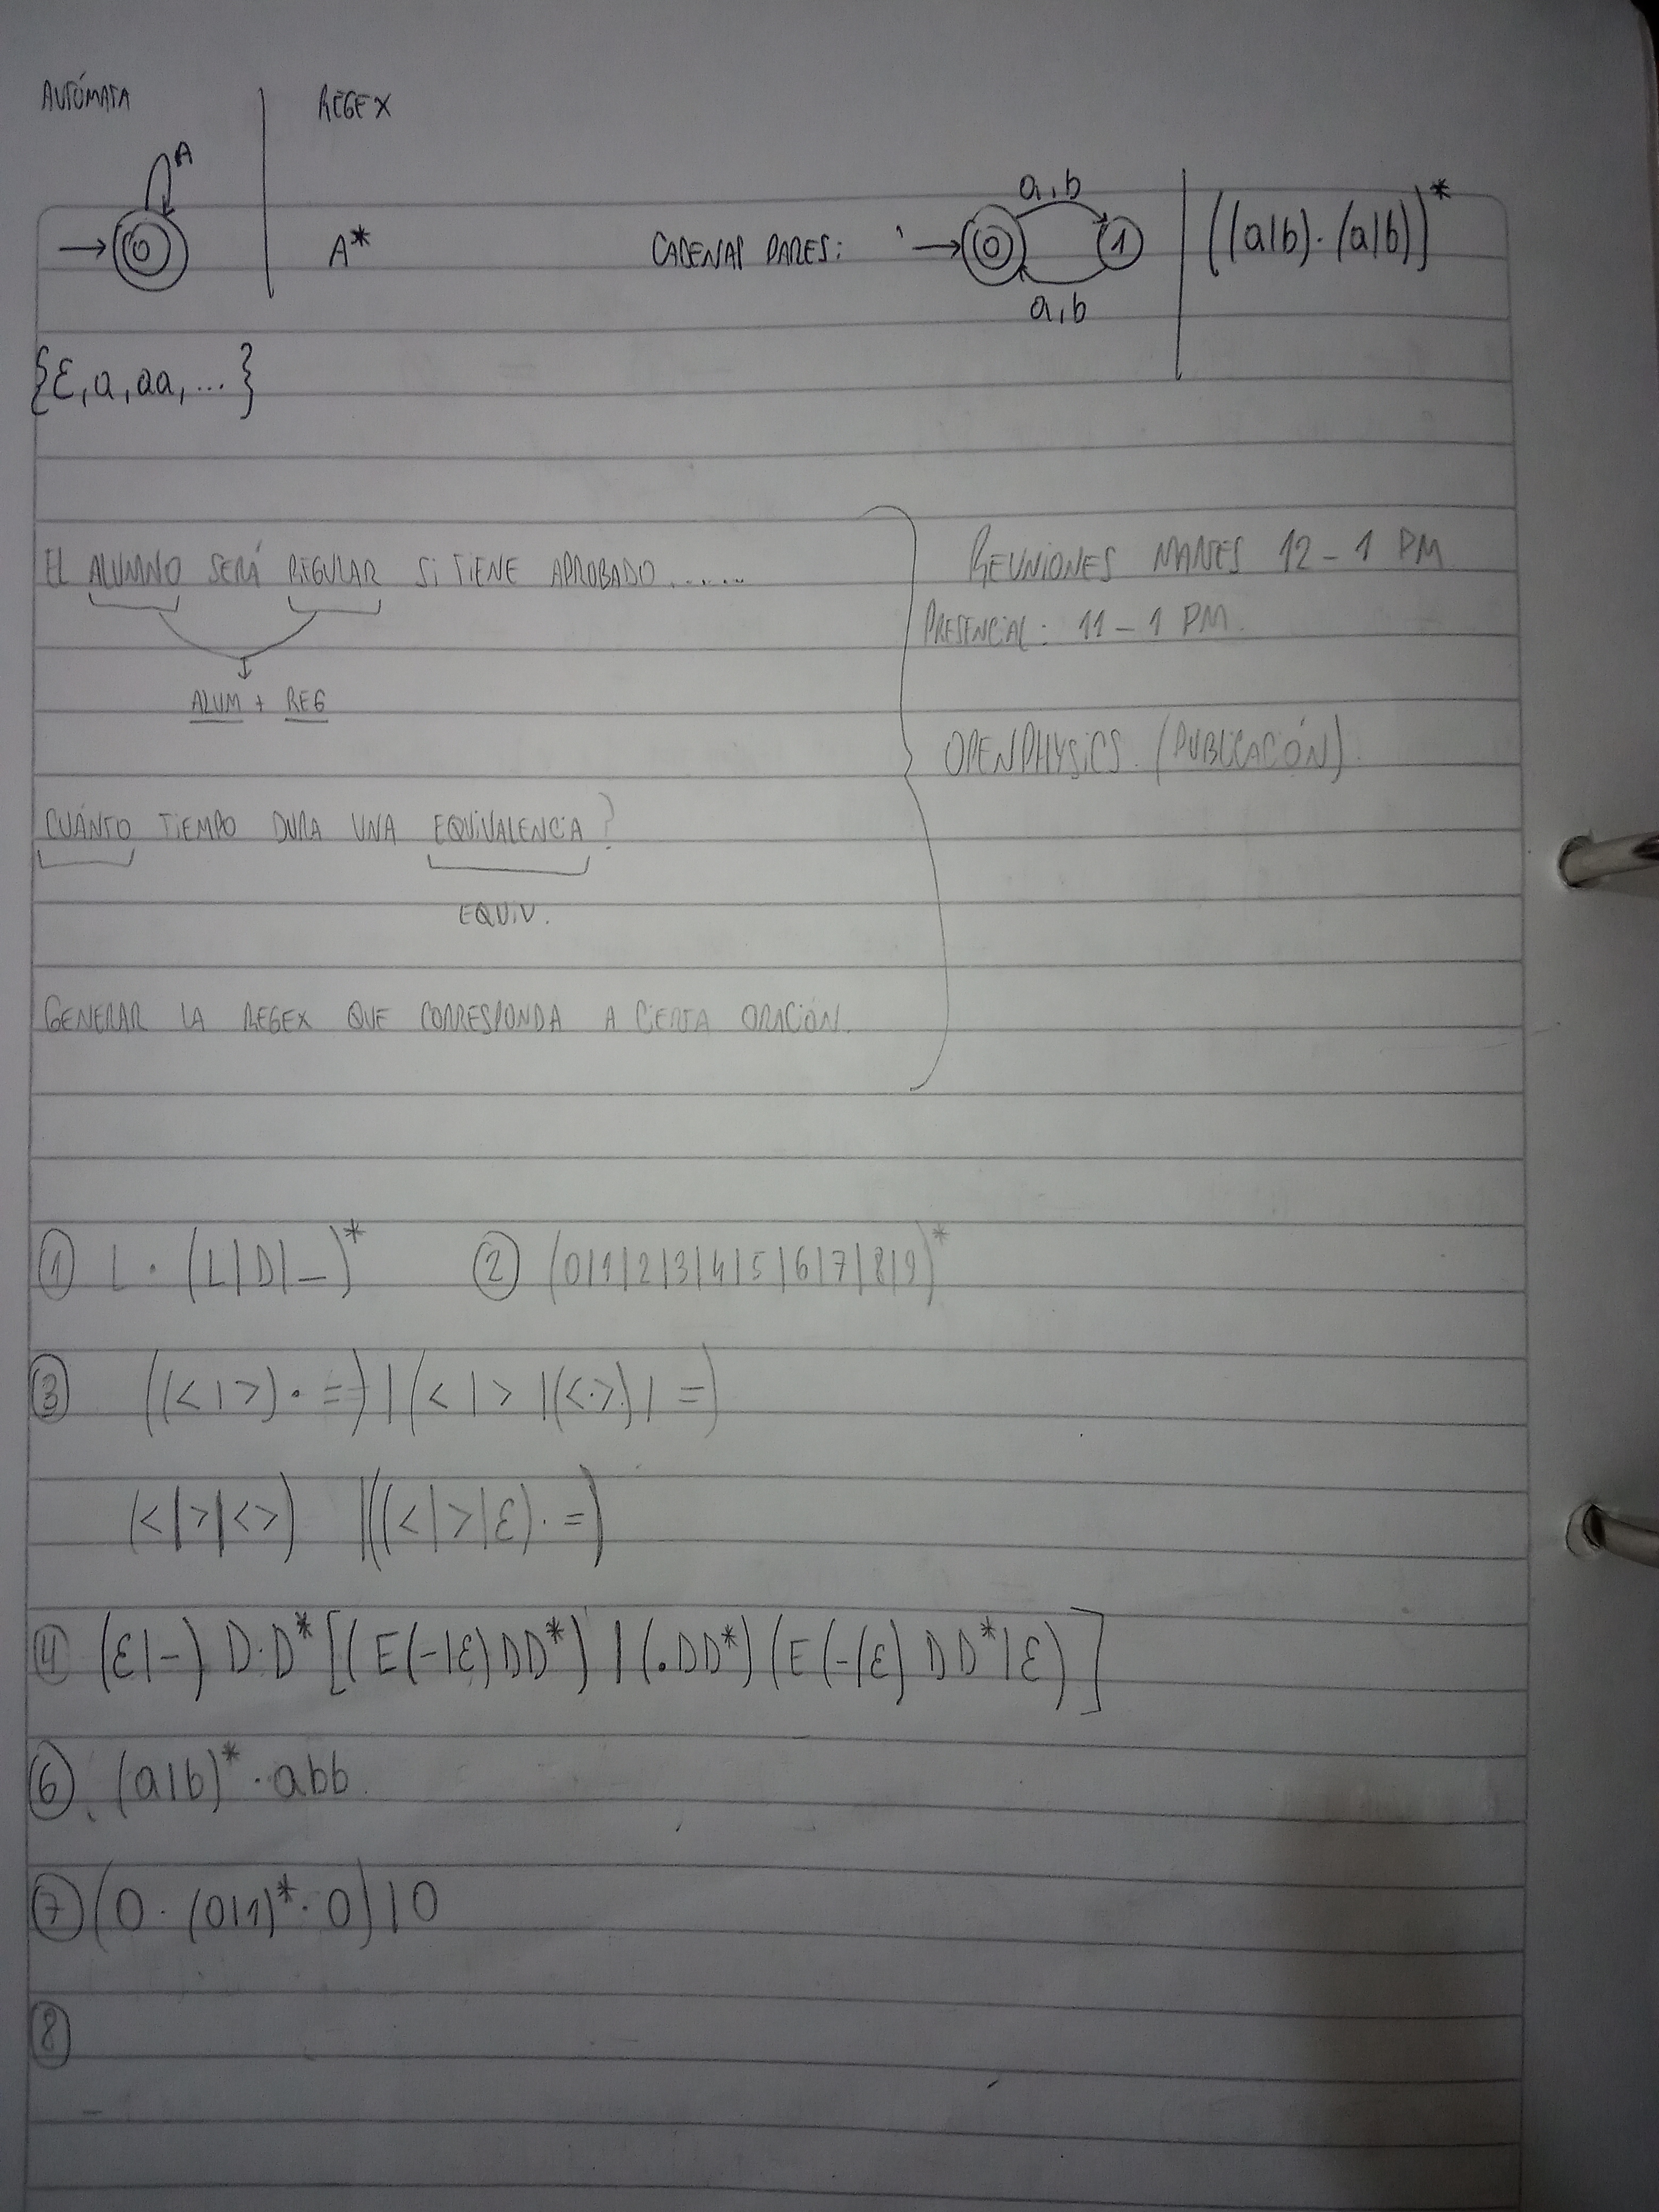 AUTÓMATA
REGEX
A
0
A*
CADENAS PARES:
a,b
0
1
a,b
((a|b)·(a|b))*
{ε, a, aa, ... }
EL ALUMNO SERÁ REGULAR SI TIENE APROBADO......
ALUM + REG
CUÁNTO TIEMPO DURA UNA EQUIVALENCIA?
EQUIV.
GENERAR LA REGEX QUE CORRESPONDA A CIERTA ORACIÓN.
REUNIONES MARTES 12 - 1 PM
PRESENCIAL: 11 - 1 PM.
OPENPHYSICS. (PUBLICACIÓN).
① L · (L|D|_)*
② (0|1|2|3|4|5|6|7|8|9)*
③ ((<|>)·=)|(<|>|(<·>)|=)
(<|>|<>) |((<|>|ε)·=)
④ (ε|-) D·D* [(E(-|ε)DD*) | (.DD*)(E(-|ε)DD*|ε)]
⑥ (a|b)*·abb.
⑦ (0·(0|1)*·0)|0
⑧